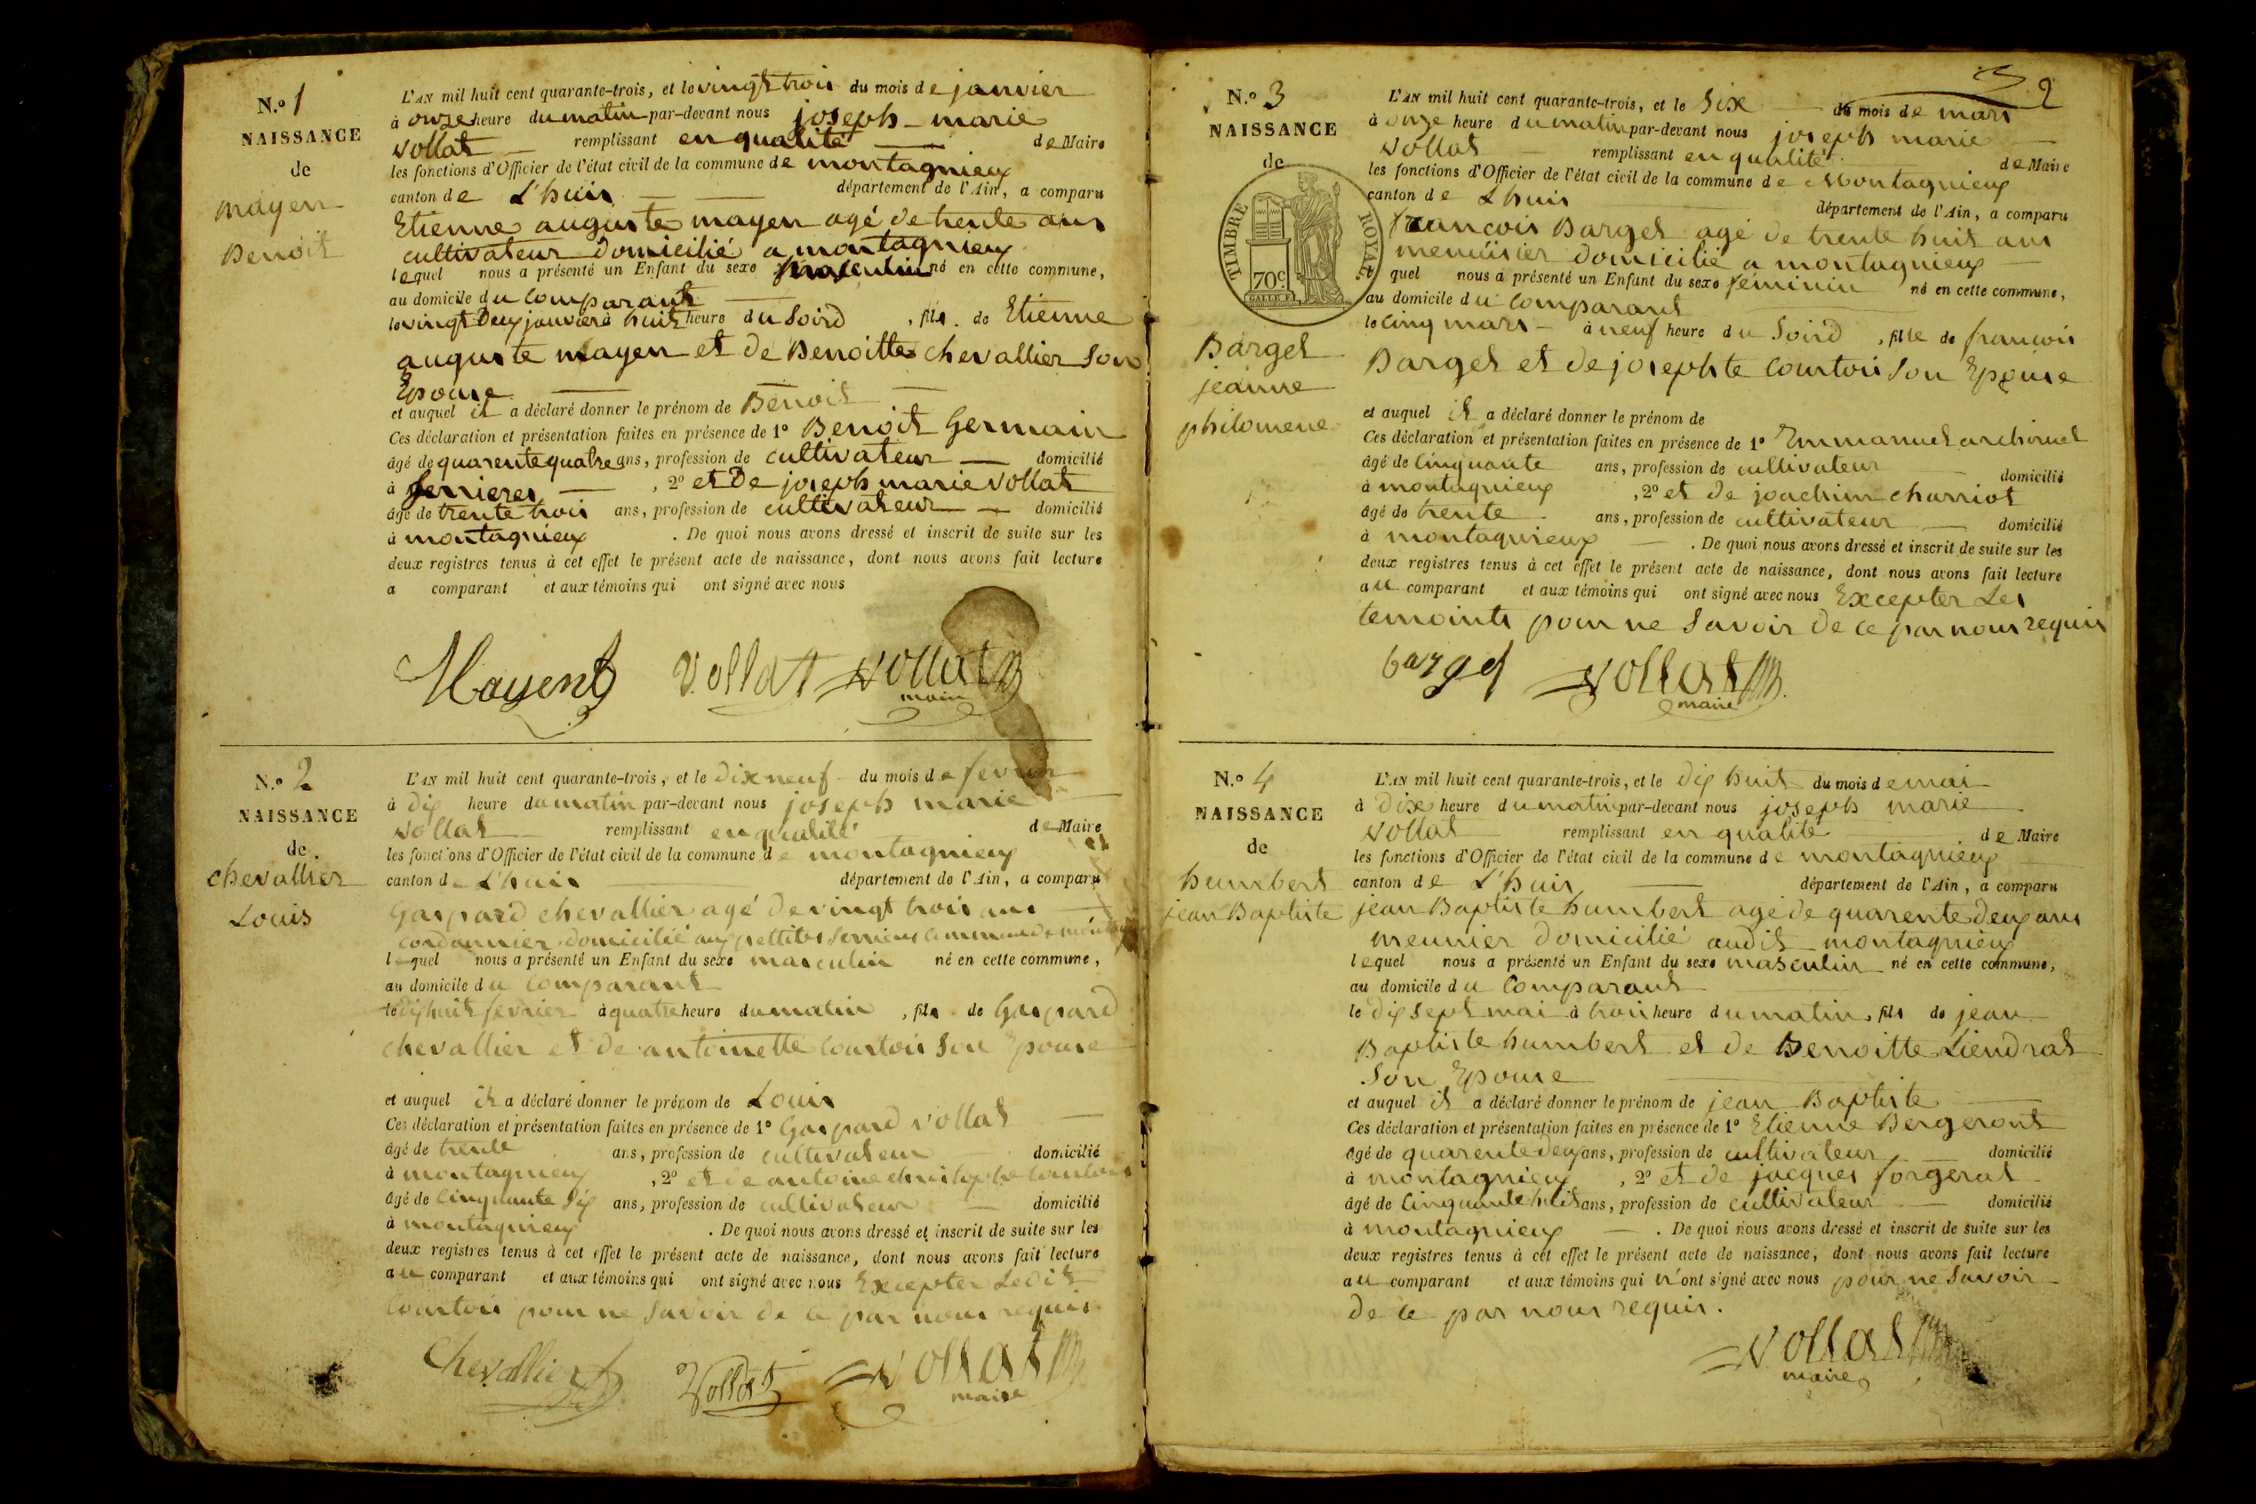 N.º 1
NAISSANCE
de
mayen
Benoit
L'AN mil huit cent quarante-trois, et le vingt trois du mois de janvier
à onze heure du matin par-devant nous joseph marie
vollat remplissant en qualité de Maire
les fonctions d'Officier de l'état civil de la commune de montagnieux
canton de L'huis département de l'Ain, a comparu
Etienne auguste mayen agé de trente ans
cultivateur domicilié a montagnieux
lequel nous a présenté un Enfant du sexe masculin né en cette commune,
au domicile du comparant
le vingt deux janvier à huit heure du Soird , fils de Etienne
auguste mayen et de Benoitte chevallier Son
Epouse
et auquel il a déclaré donner le prénom de Benoit
Ces déclaration et présentation faites en présence de 1º Benoit Germain
âgé de quarente quatre ans, profession de cultivateur domicilié
à Serrieres , 2º et De joseph marie vollat
âgé de trente trois ans, profession de cultivateur domicilié
à montagnieux . De quoi nous avons dressé et inscrit de suite sur les
deux registres tenus à cet effet le présent acte de naissance, dont nous avons fait lecture
a comparant et aux témoins qui ont signé avec nous
Mayent Vollat vollat
maire
N.º 2
NAISSANCE
de
chevallier
Louis
L'AN mil huit cent quarante-trois, et le dix neuf du mois de fevrier
à dix heure du matin par-devant nous joseph marie
vollat remplissant en qualité de Maire
les fonctions d'Officier de l'état civil de la commune de montagnieux
canton de L'huis département de l'Ain, a comparu
Gaspard chevallier agé de vingt trois ans
cordonnier domicilié aux pettites Serrieres commune de
lequel nous a présenté un Enfant du sexe masculin né en cette commune,
au domicile du comparant
le dix huit fevrier à quatre heure du matin , fils de Gaspard
chevallier et de antoinette courtois Son Epouse
et auquel il a déclaré donner le prénom de Louis
Ces déclaration et présentation faites en présence de 1º Gaspard vollat
âgé de trente ans, profession de cultivateur domicilié
à montagnieux , 2º et de antoine courtois
âgé de cinquante Six ans, profession de cultivateur domicilié
à montagnieux . De quoi nous avons dressé et inscrit de suite sur les
deux registres tenus à cet effet le présent acte de naissance, dont nous avons fait lecture
au comparant et aux témoins qui ont signé avec nous Excepter Ledit
Courtois pour ne Savoir de ce par nous requis
Chevallier Vollat vollat
maire
2
N.º 3
NAISSANCE
de
TIMBRE ROYAL
70c
Barget
jeanne
philomene
L'AN mil huit cent quarante-trois, et le Six du mois de mars
à onze heure du matin par-devant nous joseph marie
vollat remplissant en qualité de Maire
les fonctions d'Officier de l'état civil de la commune de Montagnieux
canton de L'huis département de l'Ain, a comparu
francois Barget agé de trente huit ans
menuisier domicilié a montagnieux
quel nous a présenté un Enfant du sexe feminin né en cette commune,
au domicile du comparant
le cinq mars à neuf heure du Soird , fille de francois
Barget et de josephte Courtois Son Epouse
et auquel il a déclaré donner le prénom de
Ces déclaration et présentation faites en présence de 1º Emmanuel
âgé de cinquante ans, profession de cultivateur domicilié
à montagnieux , 2º et de joachim charriot
âgé de trente ans, profession de cultivateur domicilié
à montagnieux . De quoi nous avons dressé et inscrit de suite sur les
deux registres tenus à cet effet le présent acte de naissance, dont nous avons fait lecture
au comparant et aux témoins qui ont signé avec nous Excepter Les
temoints pour ne Savoir de ce par nous requis
barget vollat
maire
N.º 4
NAISSANCE
de
humbert
jean Baptiste
L'AN mil huit cent quarante-trois, et le dix huit du mois de mai
à dix heure du matin par-devant nous joseph marie
vollat remplissant en qualité de Maire
les fonctions d'Officier de l'état civil de la commune de montagnieux
canton de L'huis département de l'Ain, a comparu
jean Baptiste humbert agé de quarente deux ans
meunier domicilié audit montagnieux
lequel nous a présenté un Enfant du sexe masculin né en cette commune,
au domicile du Comparant
le dix Sept mai à trois heure du matin, fils de jean
Baptiste humbert et de Benoitte Liendrat
Son Epouse
et auquel il a déclaré donner le prénom de jean Baptiste
Ces déclaration et présentation faites en présence de 1º Etienne Bergeront
âgé de quarente deux ans, profession de cultivateur domicilié
à montagnieux , 2º et de jacques forgerat
âgé de Cinquante huit ans, profession de cultivateur domicilié
à montagnieux . De quoi nous avons dressé et inscrit de suite sur les
deux registres tenus à cet effet le présent acte de naissance, dont nous avons fait lecture
au comparant et aux témoins qui n'ont signé avec nous pour ne Savoir
de ce par nous requis.
vollat
maire